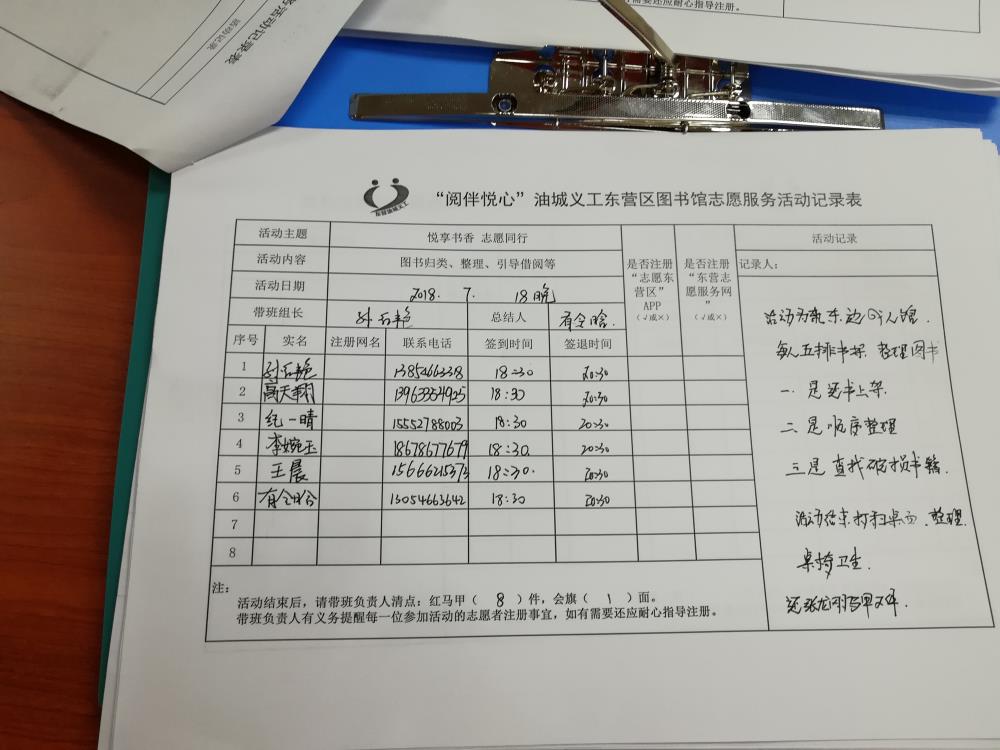 务活动记录表
活动记录
需要还应耐心指导注册。
东营油城义工
“阅伴悦心”油城义工东营区图书馆志愿服务活动记录表
活动主题 悦享书香 志愿同行
活动内容 图书归类、整理、引导借阅等
活动日期 2018. 7. 18晚
带班组长 总结人
是否注册“志愿东营区”APP（√或×）
是否注册“东营志愿服务网”（√或×）
活动记录
记录人：
序号 实名 注册网名 联系电话 签到时间 签退时间
1 18:30 20:30
2 高天翔 13963354925 18:30 20:30
3 纪一晴 15552788003 18:30 20:30
4 李婉玉 18678677679 18:30. 20:30
5 王晨 15666215373 18:30. 20:30
6 13054663642 18:30 20:30
7
8
每人五排书架 整理图书
一是 还书上架
二是 顺序整理
三是 查找破损书籍.
活动结束打扫桌面、整理
桌椅卫生.
注：
活动结束后，请带班负责人清点：红马甲（ 8 ）件，会旗（ 1 ）面。
带班负责人有义务提醒每一位参加活动的志愿者注册事宜，如有需要还应耐心指导注册。